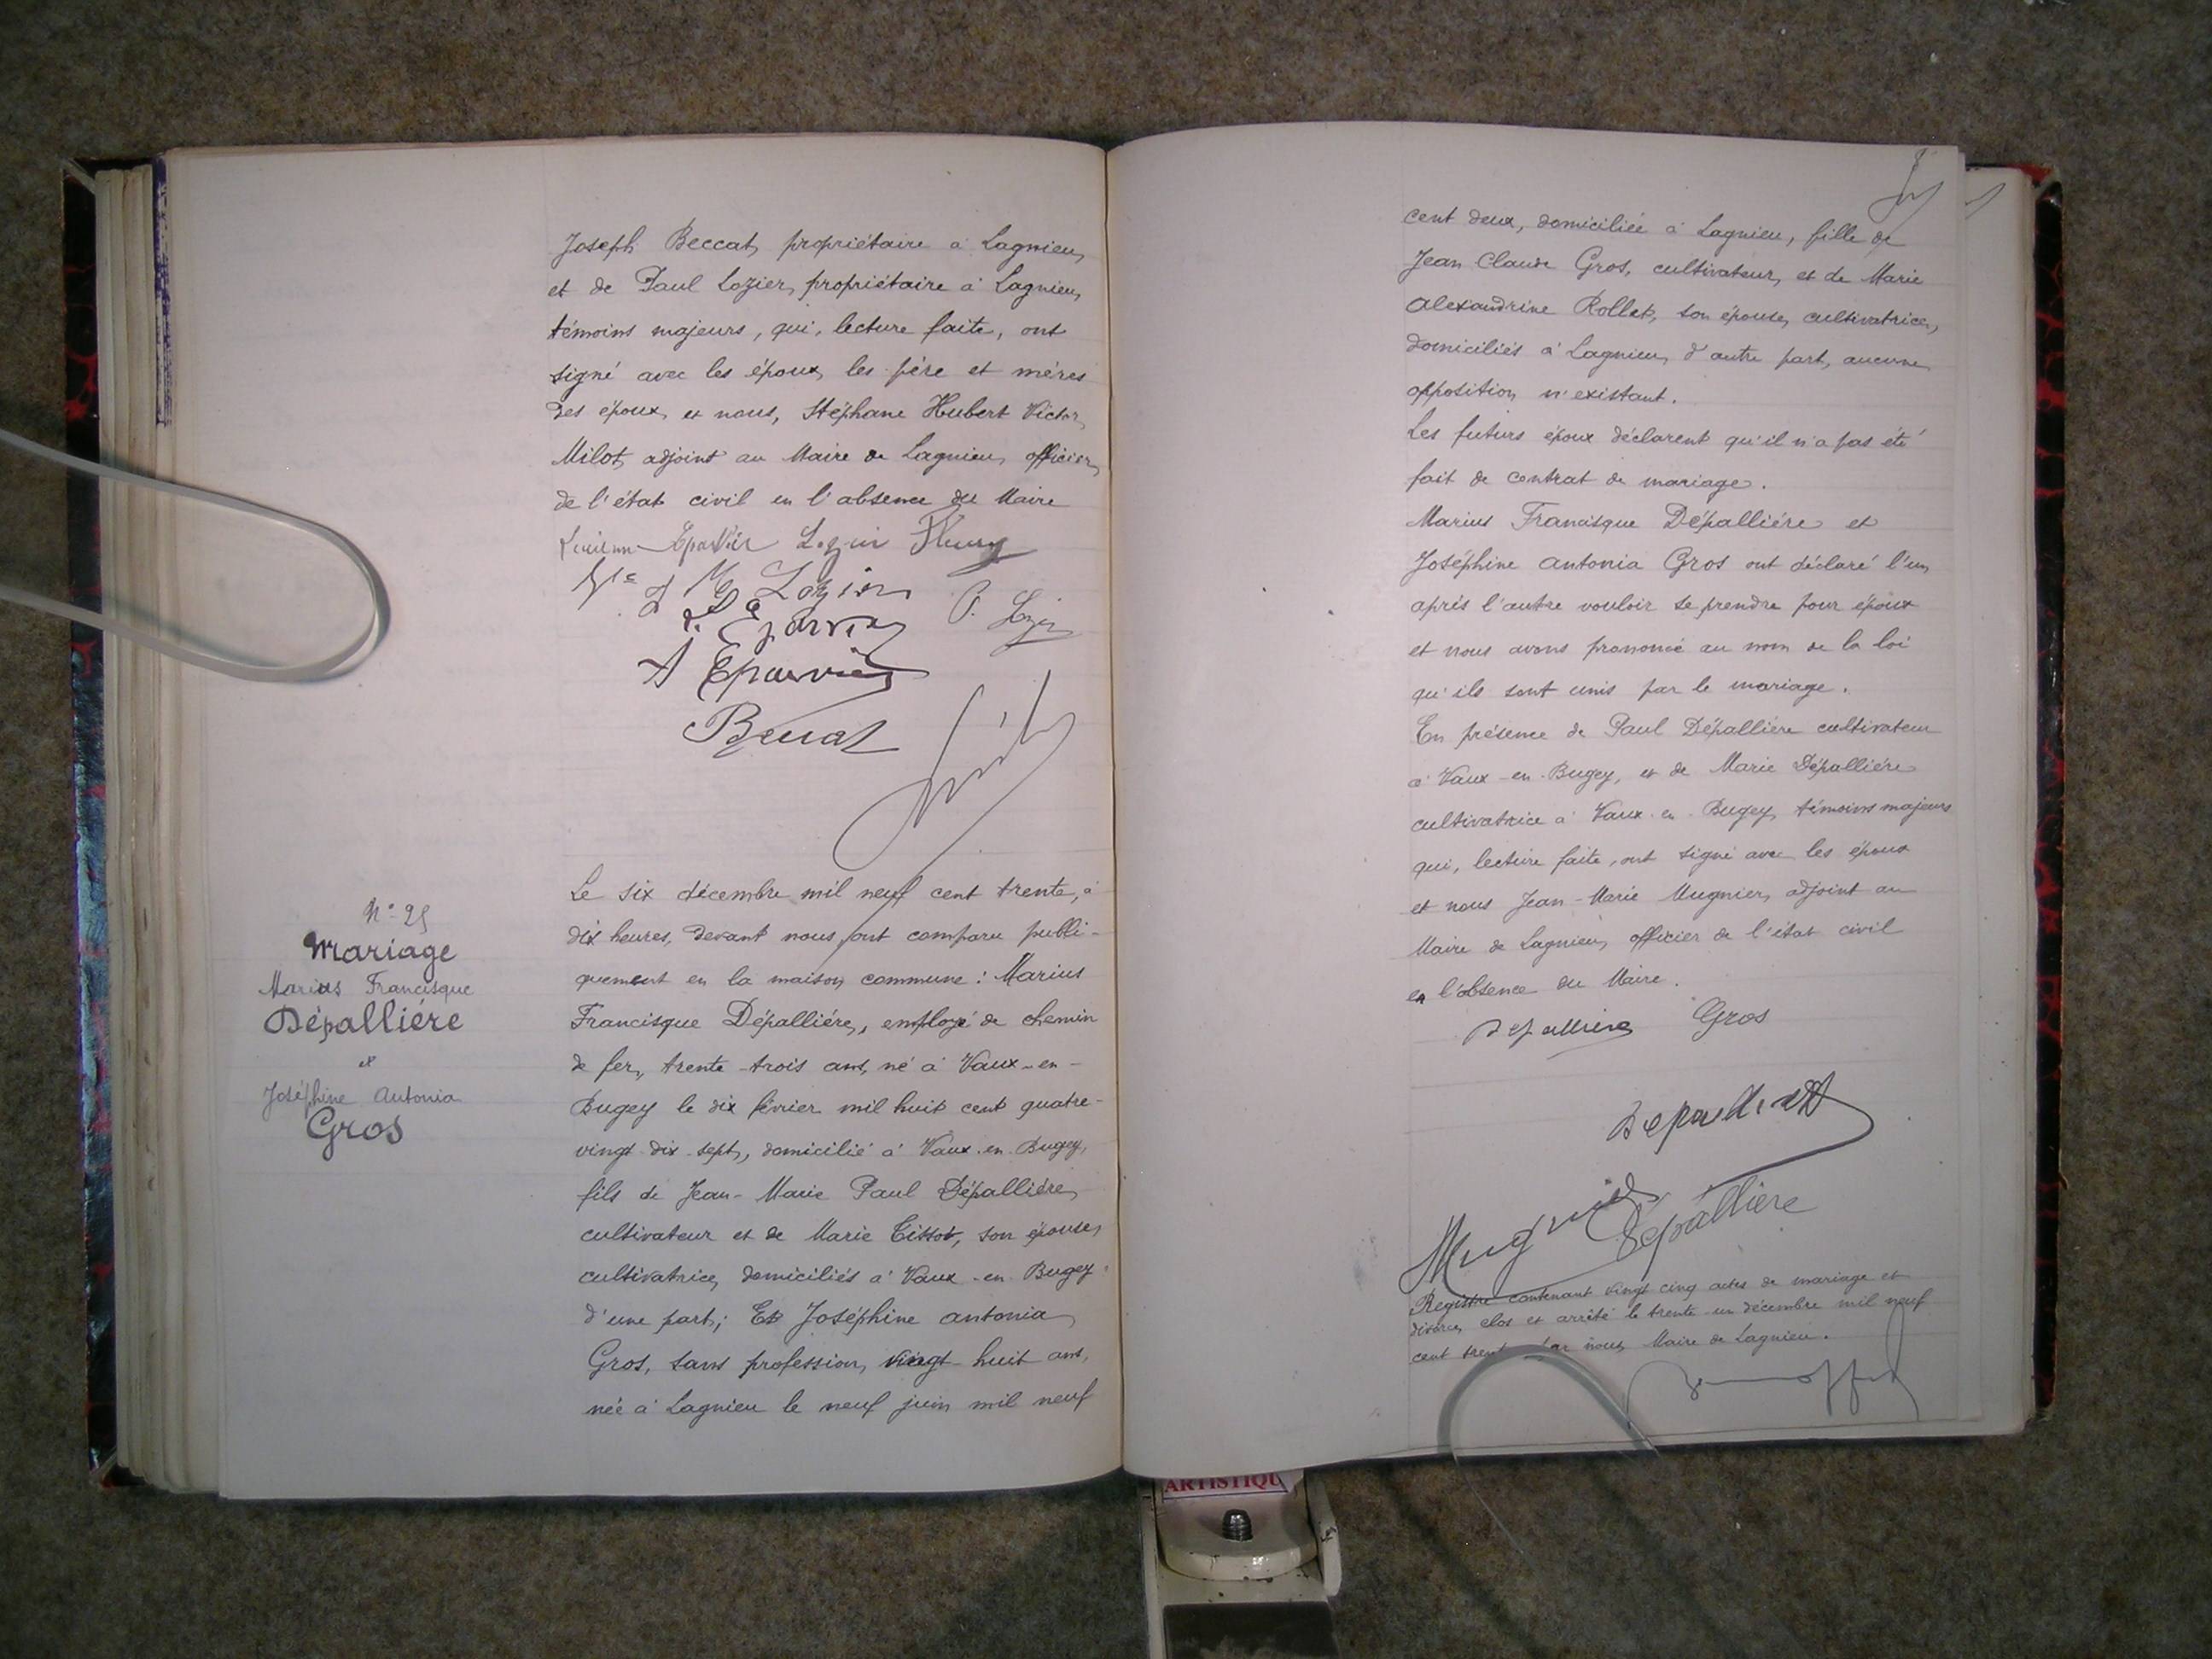 Joseph Beccat, propriétaire à Lagnieu,
et de Paul Lozier, propriétaire à Lagnieu,
témoins majeurs, qui, lecture faite, ont
signé avec les époux, les père et mères
des époux, et nous, Stéphane Hubert Victor
Milot, adjoint au Maire de Lagnieu, officier
de l'état civil en l'absence du Maire
Lozier Fleury
Lozier
P. Lozier
Eparvier
A Eparvier
Beccat
N° 25
Mariage
Marius Francisque
Dépalliére
et
Joséphine Antonia
Gros
Le six décembre mil neuf cent trente, à
dix heures, devant nous, ont comparu publi-
quement en la maison commune : Marius
Francisque Dépalliére, employé de chemin
de fer, trente-trois ans, né à Vaux-en-
Bugey le dix février mil huit cent quatre-
vingt-dix-sept, domicilié à Vaux-en-Bugey,
fils de Jean-Marie Paul Dépalliére,
cultivateur et de Marie Tissot, son épouse,
cultivatrice, domiciliés à Vaux-en-Bugey
d'une part; Et Joséphine Antonia
Gros, sans profession, vingt-huit ans,
née à Lagnieu le neuf juin mil neuf
cent deux, domiciliée à Lagnieu, fille de
Jean Claude Gros, cultivateur, et de Marie
Alexandrine Rollet, son épouse, cultivatrice,
domiciliés à Lagnieu, d'autre part, aucune
opposition n'existant.
Les futurs époux déclarent qu'il n'a pas été
fait de contrat de mariage.
Marius Francisque Dépalliére et
Joséphine Antonia Gros ont déclaré l'un
après l'autre vouloir se prendre pour époux
et nous avons prononcé au nom de la loi
qu'ils sont unis par le mariage.
En présence de Paul Dépalliére cultivateur
à Vaux-en-Bugey, et de Marie Dépalliére
cultivatrice à Vaux-en-Bugey, témoins majeurs
qui, lecture faite, ont signé avec les époux
et nous Jean-Marie Mugnier, adjoint au
Maire de Lagnieu, officier de l'état civil
en l'absence du Maire.
Depalliere Gros
Depalliere
Mugnier Depalliere
Registre contenant vingt cinq actes de mariage et
divorce, clos et arrêté le trente-un décembre mil neuf
cent trente par nous, Maire de Lagnieu.
ARTISTIQU